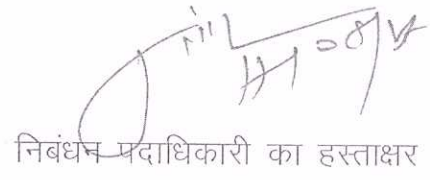 निबंधन पदाधिकारी का हस्ताक्षर